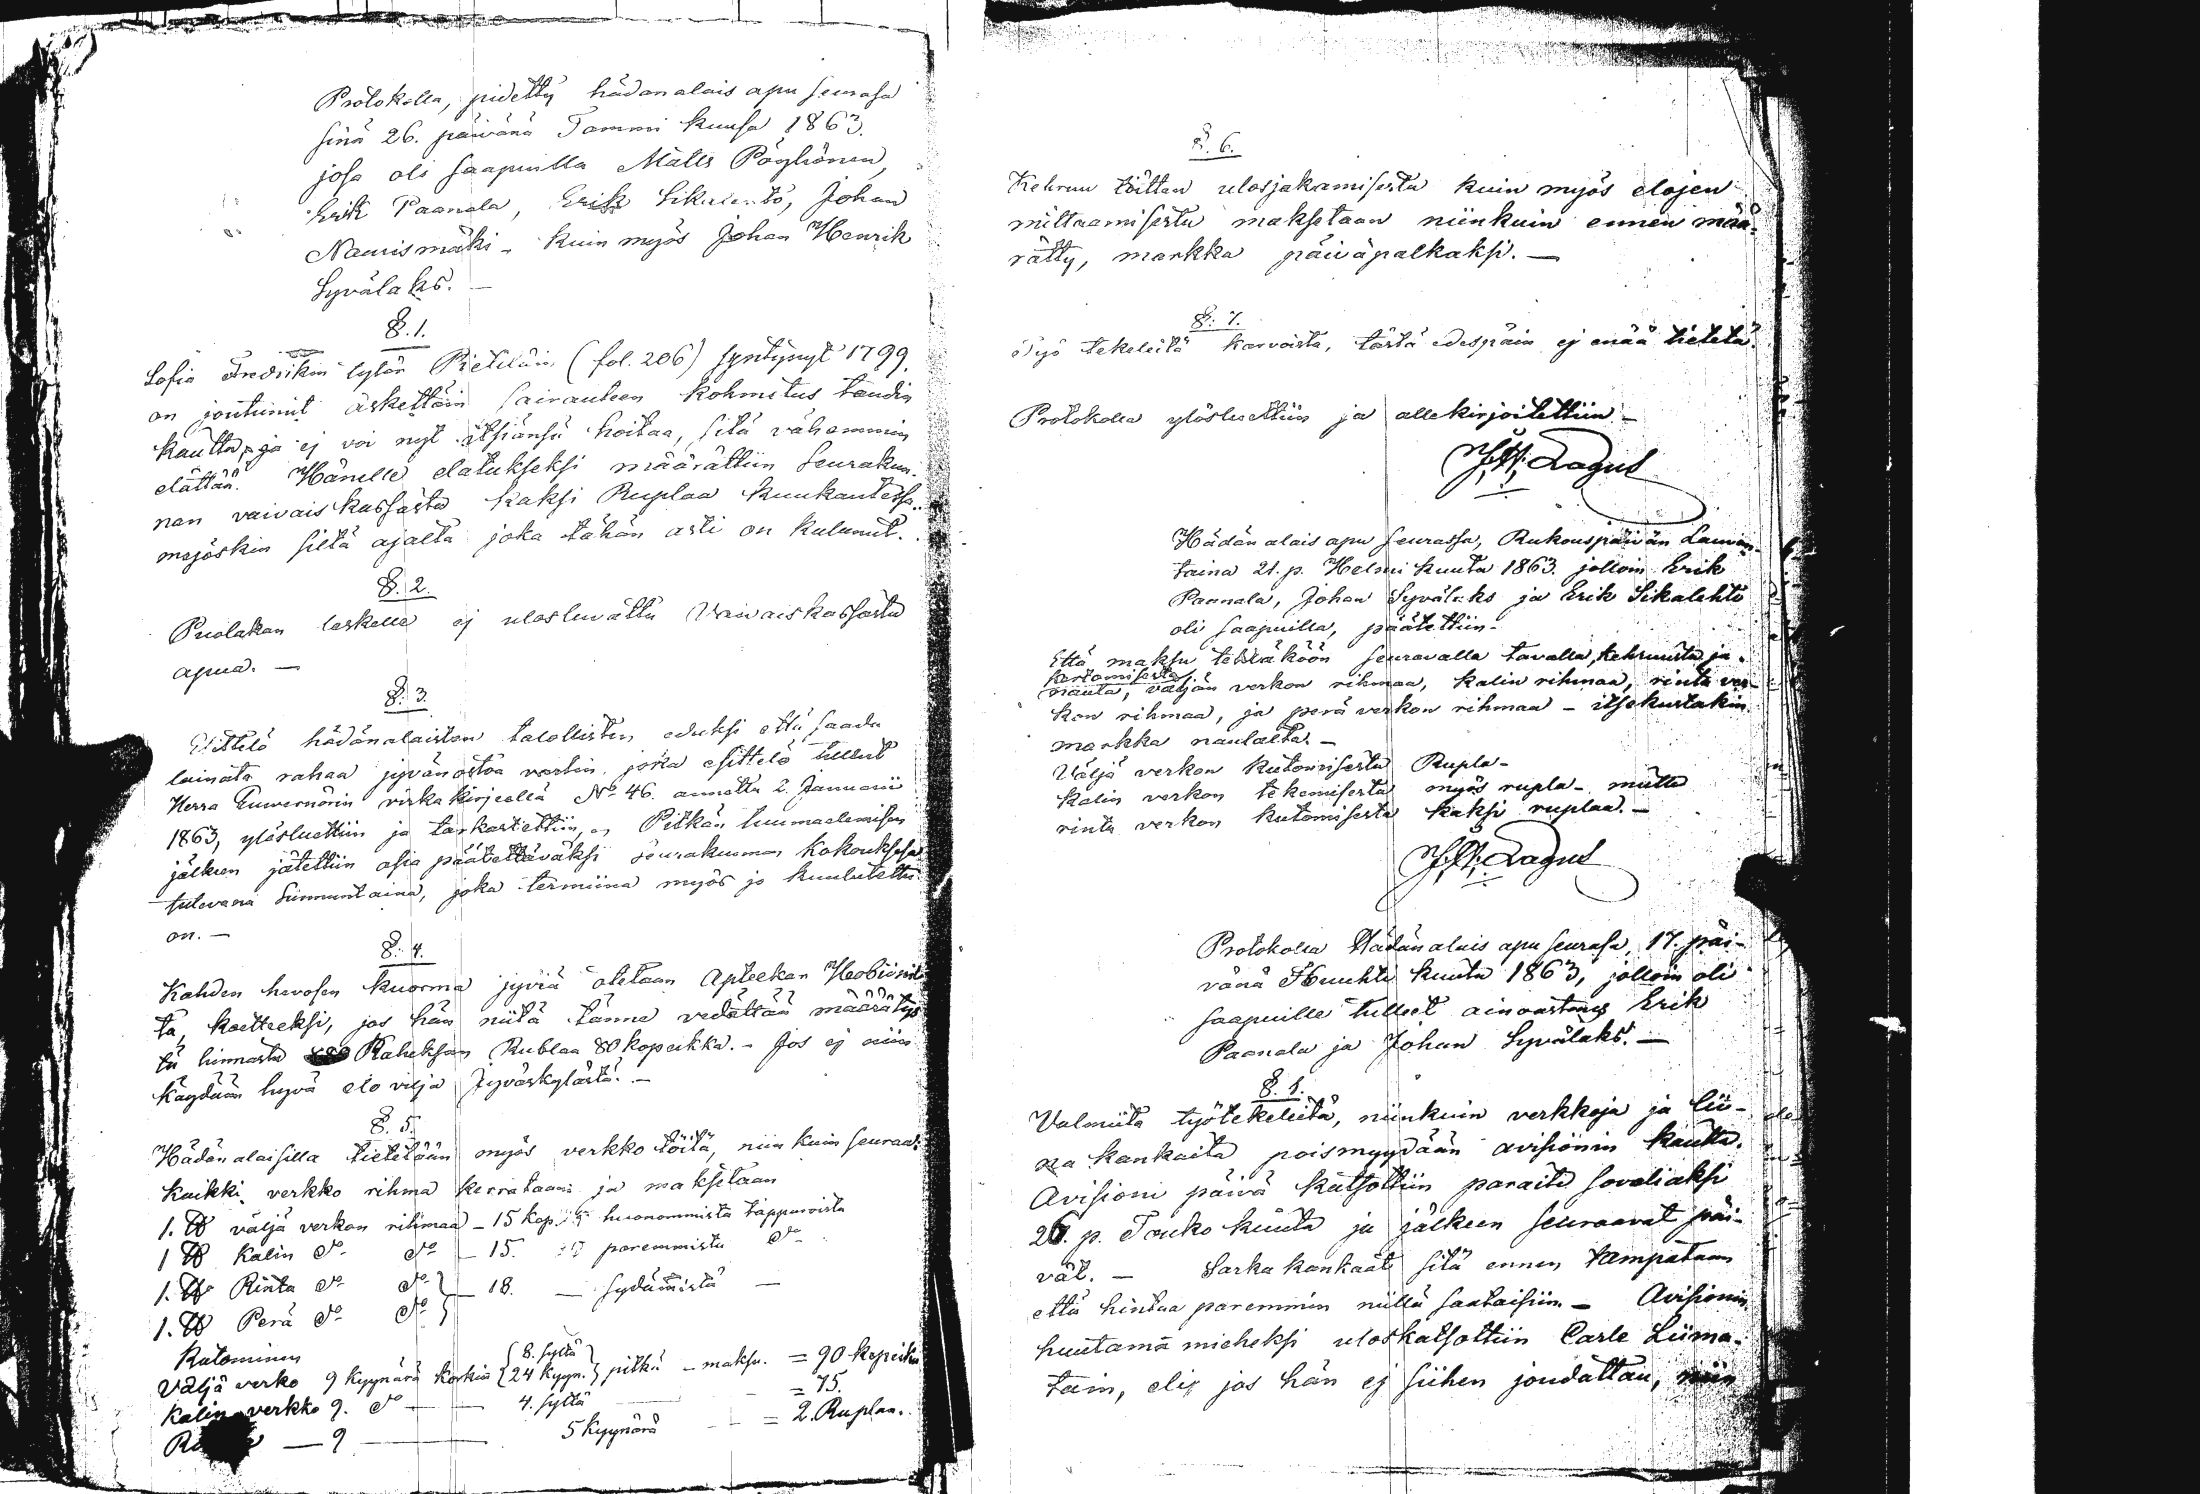 Protokolla, pidetty hädänalais apu seurasa
sinä 26. päivänä Tammi kuusa 1863.
josa oli saapuilla Matts Pöyhönen,
Erik Paanala, Erik Sikalehto, Johan
Naurismäki - kuin myös Johan Henrik
Syväläks. —
§. 1.
Sofia Fredrikin tytär Pietiläin (fol. 206) syntynyt 1799.
on joutunut äskettäin sairauteen kohmetus taudin
kautta, ja ej voi nyt itsiänsä hoitaa, sitä vähemmin
elättää. Hänelle elatukseksi määrättiin Seurakun-
nan vaivais kassasta kaksi Ruplaa kuukautessa..
myöskin siltä ajalta joka tähän asti on kulunut..
§. 2.
Puolakan leskelle ej ulosluvattu Vaivaiskassasta
apua. —
§. 3
Esittelö hädänalaisten talollisten eduksi että saada
lainata rahaa jyvänostoa vartin, joka esittelö tullut
Herra Guvernörin virkakirjeellä No. 46. annettu 2. Januarii
1863, ylösluettiin ja tarkastettiin, Pitkän
jälkeen jätettiin asia päätettäväksi seurakunnan kokouksesa
tulevana Sunnuntaina, joka termiina myös jo kuulutettu
on. —
§. 4.
Kahden hevosen kuorma jyviä otetaan Apteekar
ta, koetteeksi, jos hän niitä tänne vedättää määrätys
tä hinnasta Kaheksan Rublaa 80 kopeikka. - Jos ej niin
käydään hyvä elo vilja Jyväskylästä. —
§. 5.
Hädänalaisilla tietetään myös verkko töitä, niin kuin seuraa:
Kaikki verkko rihma kerrataan ja maksetaan
1. ℔ väljä verkon rihmaa - 15 kop. huonommista tappuroista
1 ℔ Kalin do. do - 15. paremmista do
1. ℔ Rinta do do } - 18. — sydämmistä —
1. ℔ Perä do do }
Kutominen
Väljä verko 9 kyynärä korkia { 8. syltä 24 kyyn. } pitkä - maksu. = 90 kopeikka
Kalin verkko 9. do — 4. syltä = 75.
— 9 — 5 kyynärä = 2. Ruplaa.
§. 6.
Kehruu töitten ulosjakamisesta kuin myös elojen
mittaamisesta maksetaan niinkuin ennen mää-
rätty, markka päiväpalkaksi. —
§. 7.
Työ tekeleitä karvoista, tästä edespäin ej enää tietetä.
Protokolla ylösluettiin ja allekirjoitettiin -
Lagus
Hädän alais apu seurassa, Rukouspäivän Lauvan-
taina 21. p. Helmi kuuta 1863. jolloin Erik
Paanala, Johan Syväläks ja Erik Sikalehto
oli saapuilla, päätettiin -
Että maksu tehtäköön seuravalla tavalla, kehruusta ja
kertomisesta
nauta, väljän verkon rihmaa, kalin rihmaa, rinta ver-
kon rihmaa, ja perä verkon rihmaa - itsekustakin
markka naulalta. —
Väljä verkon kutomisesta Rupla -
kalin verkon tekemisestä myös rupla - mutta
rinta verkon kutomisesta kaksi ruplaa. —
Lagus
Protokolla Hädänalais apu seurasa, 17. päi-
vänä Huuhti kuuta 1863, jolloin oli
saapuille tulleet ainoastans Erik
Paanala ja Johan Syväläks. —
§. 1.
Valmiita työtekeleitä, niinkuin verkkoja ja lii-
na kankaita poismyydään avisionin kautta.
Avisioni päivä katsottiin paraite soveliaksi
26. p. Touko kuuta ja jälkeen seuraavat päi-
vät. — Sarka kankaat sitä ennen tampataan
että hintaa paremmin niillä saataisiin. — Avisionin
huutama mieheksi uloskatsottiin Carle Liima-
tain, elis jos hän ej siihen joudattau, niin